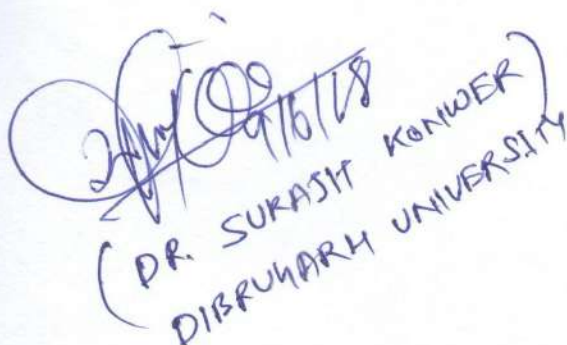 9/6/18
(DR. SURAJIT KONWER)
DIBRUGARH UNIVERSITY